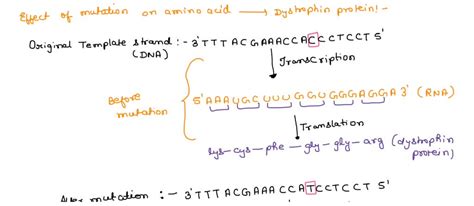 Effect of mutation on amino acid → Dystrophin protein:-
Original Template strand :- 3'TTT ACGAAACCACCCTCCT 5'
(DNA)
Transcription
Before
mutation
5'AAAUGCUUUGGUGGGAGGA3' (RNA)
Translation
lys-cys-phe-gly-gly-arg (dystrophin
protein)
mutation :- 3'TTT ACGAAACCATCCTCCT 5'